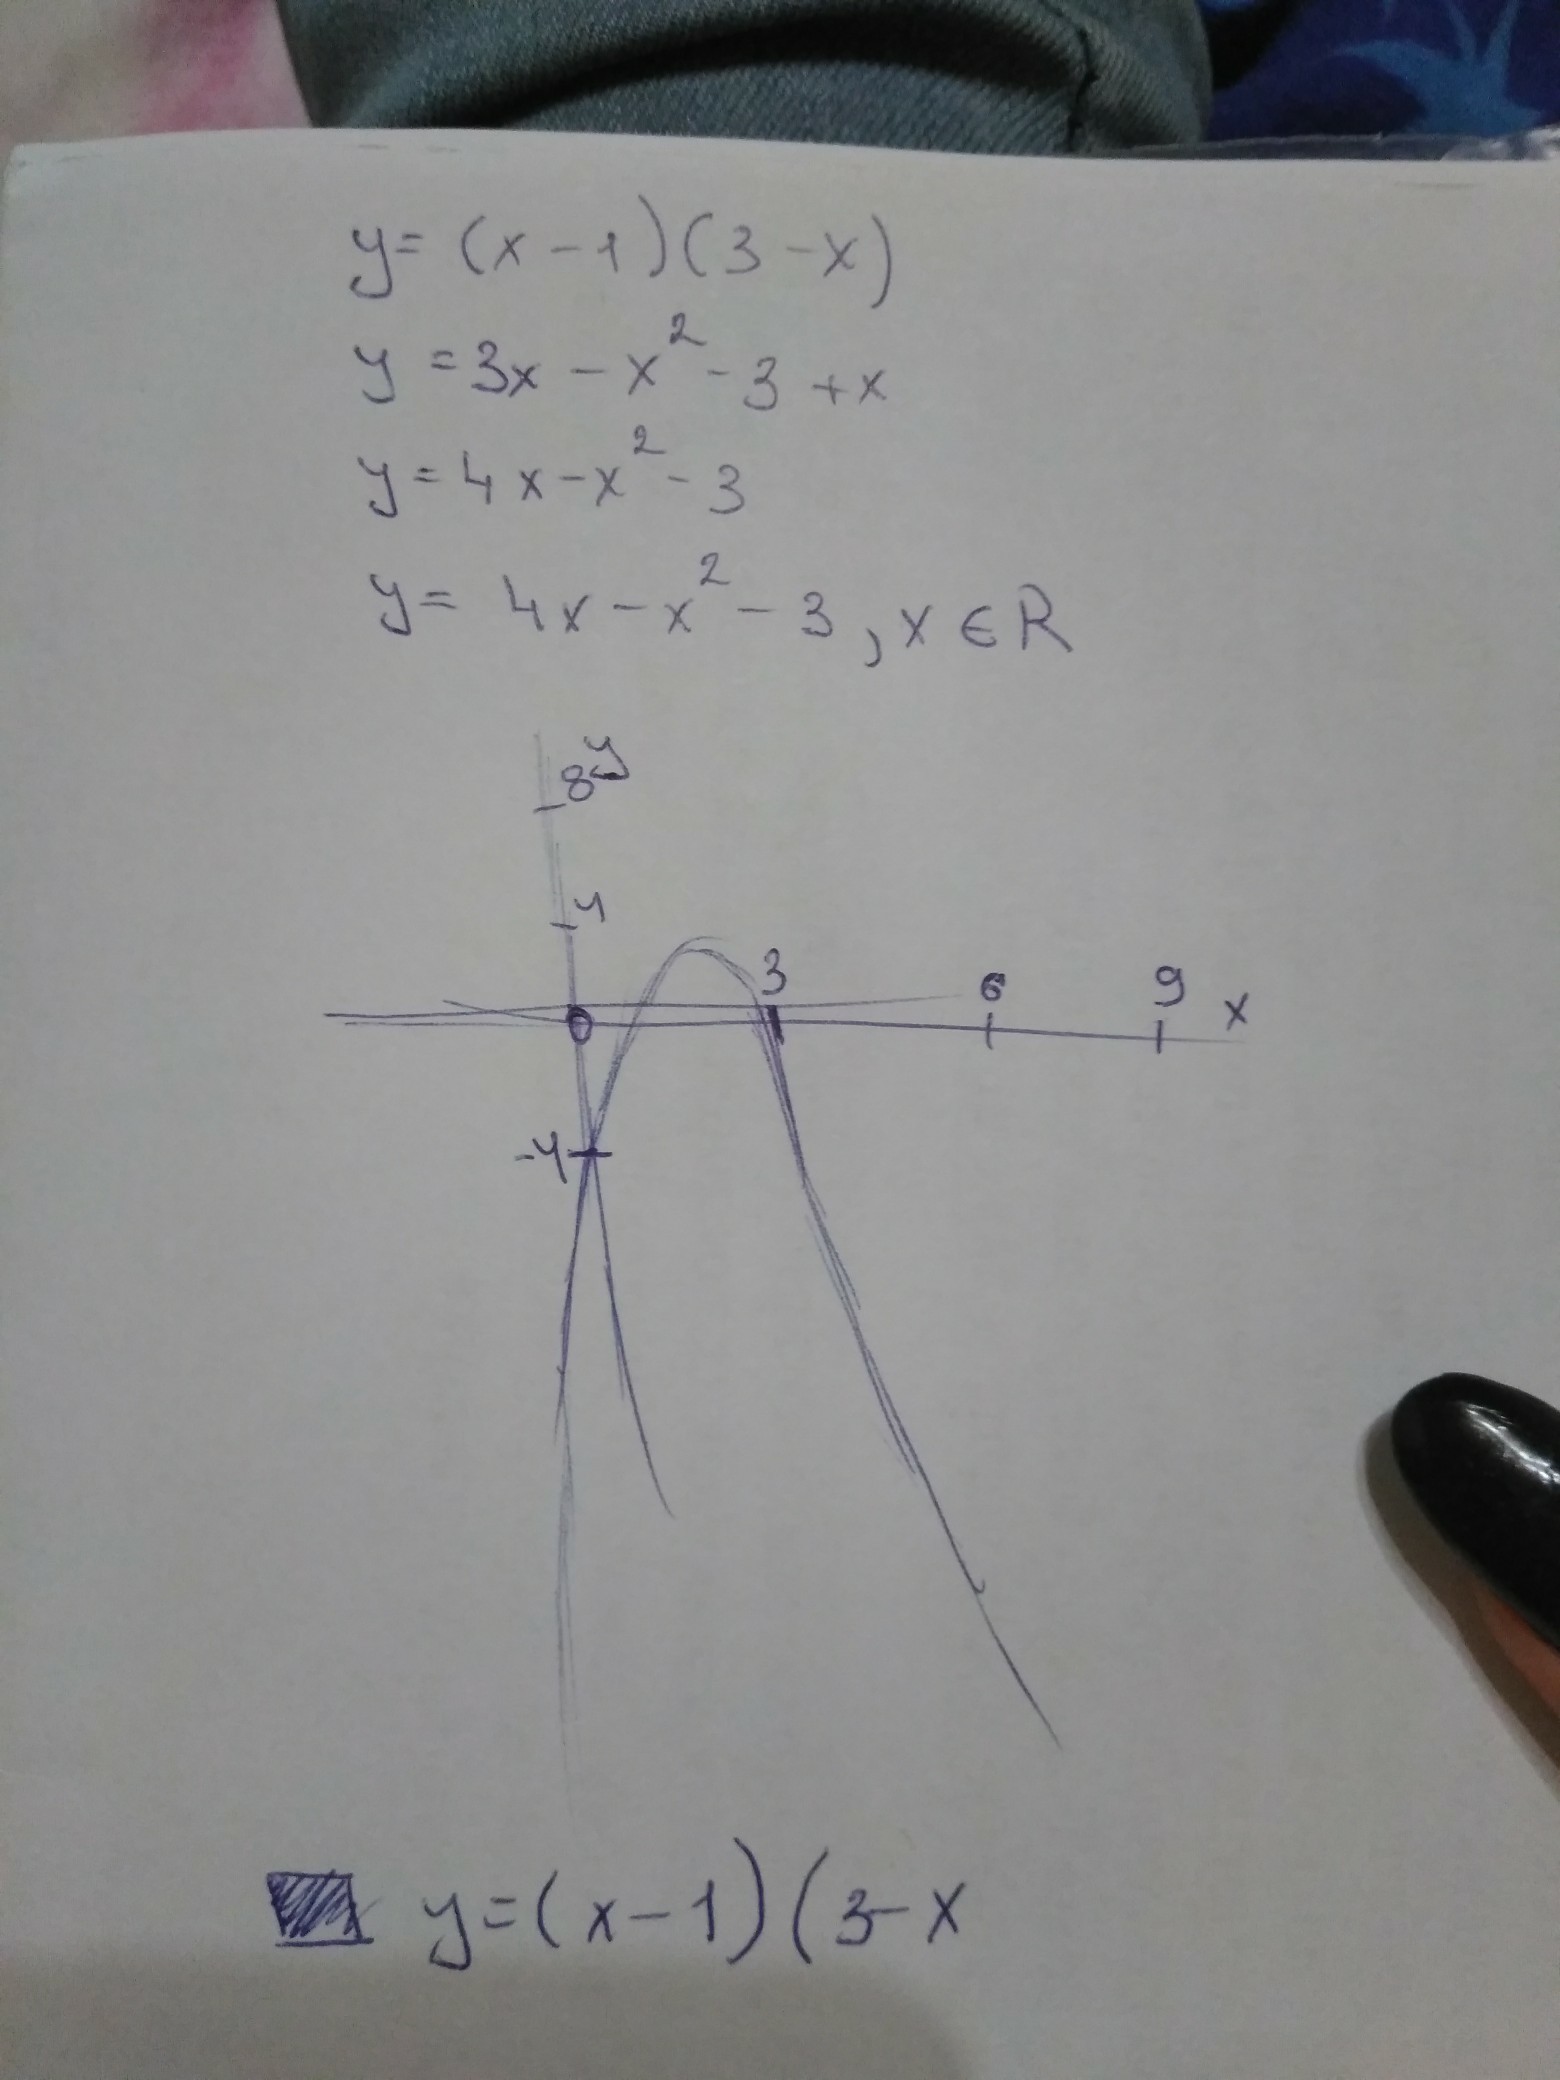 y=(x-1)(3-x)
y=3x-x²-3+x
y=4x-x²-3
y=4x-x²-3, x∈R
y
8
4
3
6
9
x
0
-4
y=(x-1)(3-x